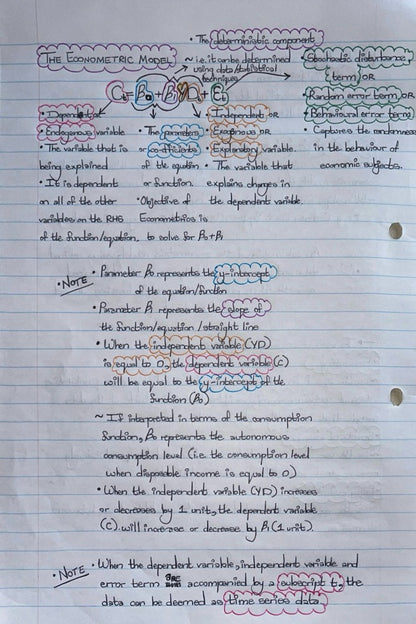 • The deterministic component
THE ECONOMETRIC MODEL
~ i.e. it can be determined
using data/statistical
techniques
• Stochastic disturbance
(term) OR
• Random error term OR
• Behavioural error terms
• Captures the randomness
in the behaviour of
economic subjects.
Ct = β0 + β1 YDt + Et
• Dependent
• Endogenous variable
• The variable that is
being explained
• It is dependent
on all of the other
variables on the RHS
of the function/equation.
• The parameters
or co-efficients
of the equation
or function.
• Objective of
Econometrics is
to solve for β0 + β1
• Independent OR
• Exogenous OR
• Explanatory variable.
• The variable that
explains changes in
the dependent variable.
• NOTE • Parameter β0 represents the y-intercept
of the equation/function
• Parameter β1 represents the slope of
the function/equation/straight line
• When the independent variable (YD)
is equal to 0, the dependent variable (C)
will be equal to the y-intercept of the
function (β0)
~ If interpreted in terms of the consumption
function, β0 represents the autonomous
consumption level (i.e. the consumption level
when disposable income is equal to 0)
• When the independent variable (YD) increases
or decreases by 1 unit, the dependent variable
(C) will increase or decrease by β1 (1 unit).
• NOTE • When the dependent variable, independent variable and
error term are accompanied by a subscript t, the
data can be deemed as time series data.